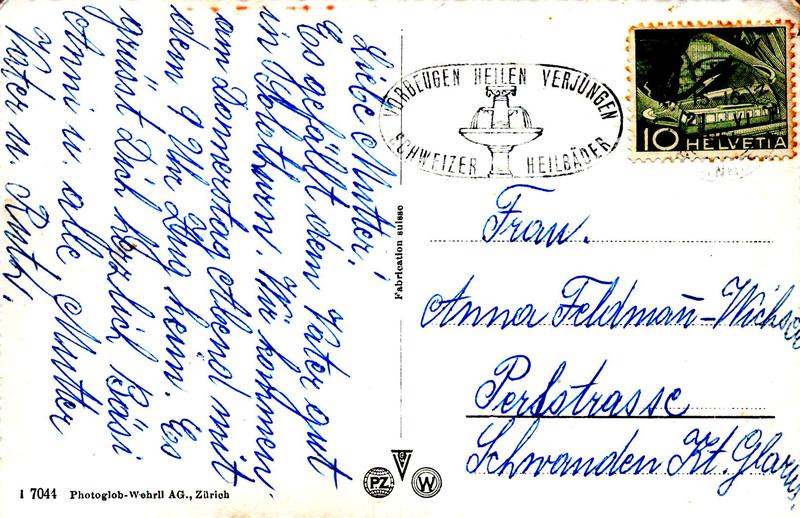 Liebe Mutter!
Es gefällt dem Vater gut
in Solothurn. Wir kommen
am Donnerstag Abend mit
dem 9 Uhr Zug heim. Es
grüsst Dich herzlich Bäsi
Anni u. alle, Mutter
Vater u. Ruth.
VORBEUGEN HEILEN VERJÜNGEN
SCHWEIZER HEILBÄDER
10 HELVETIA
Frau.
Anna Feldmañ-Wichser
Perlstrasse
Schwanden Kt. Glarus.
Fabrication suisse
PZ
W
1 7044 Photoglob-Wehrli AG., Zürich